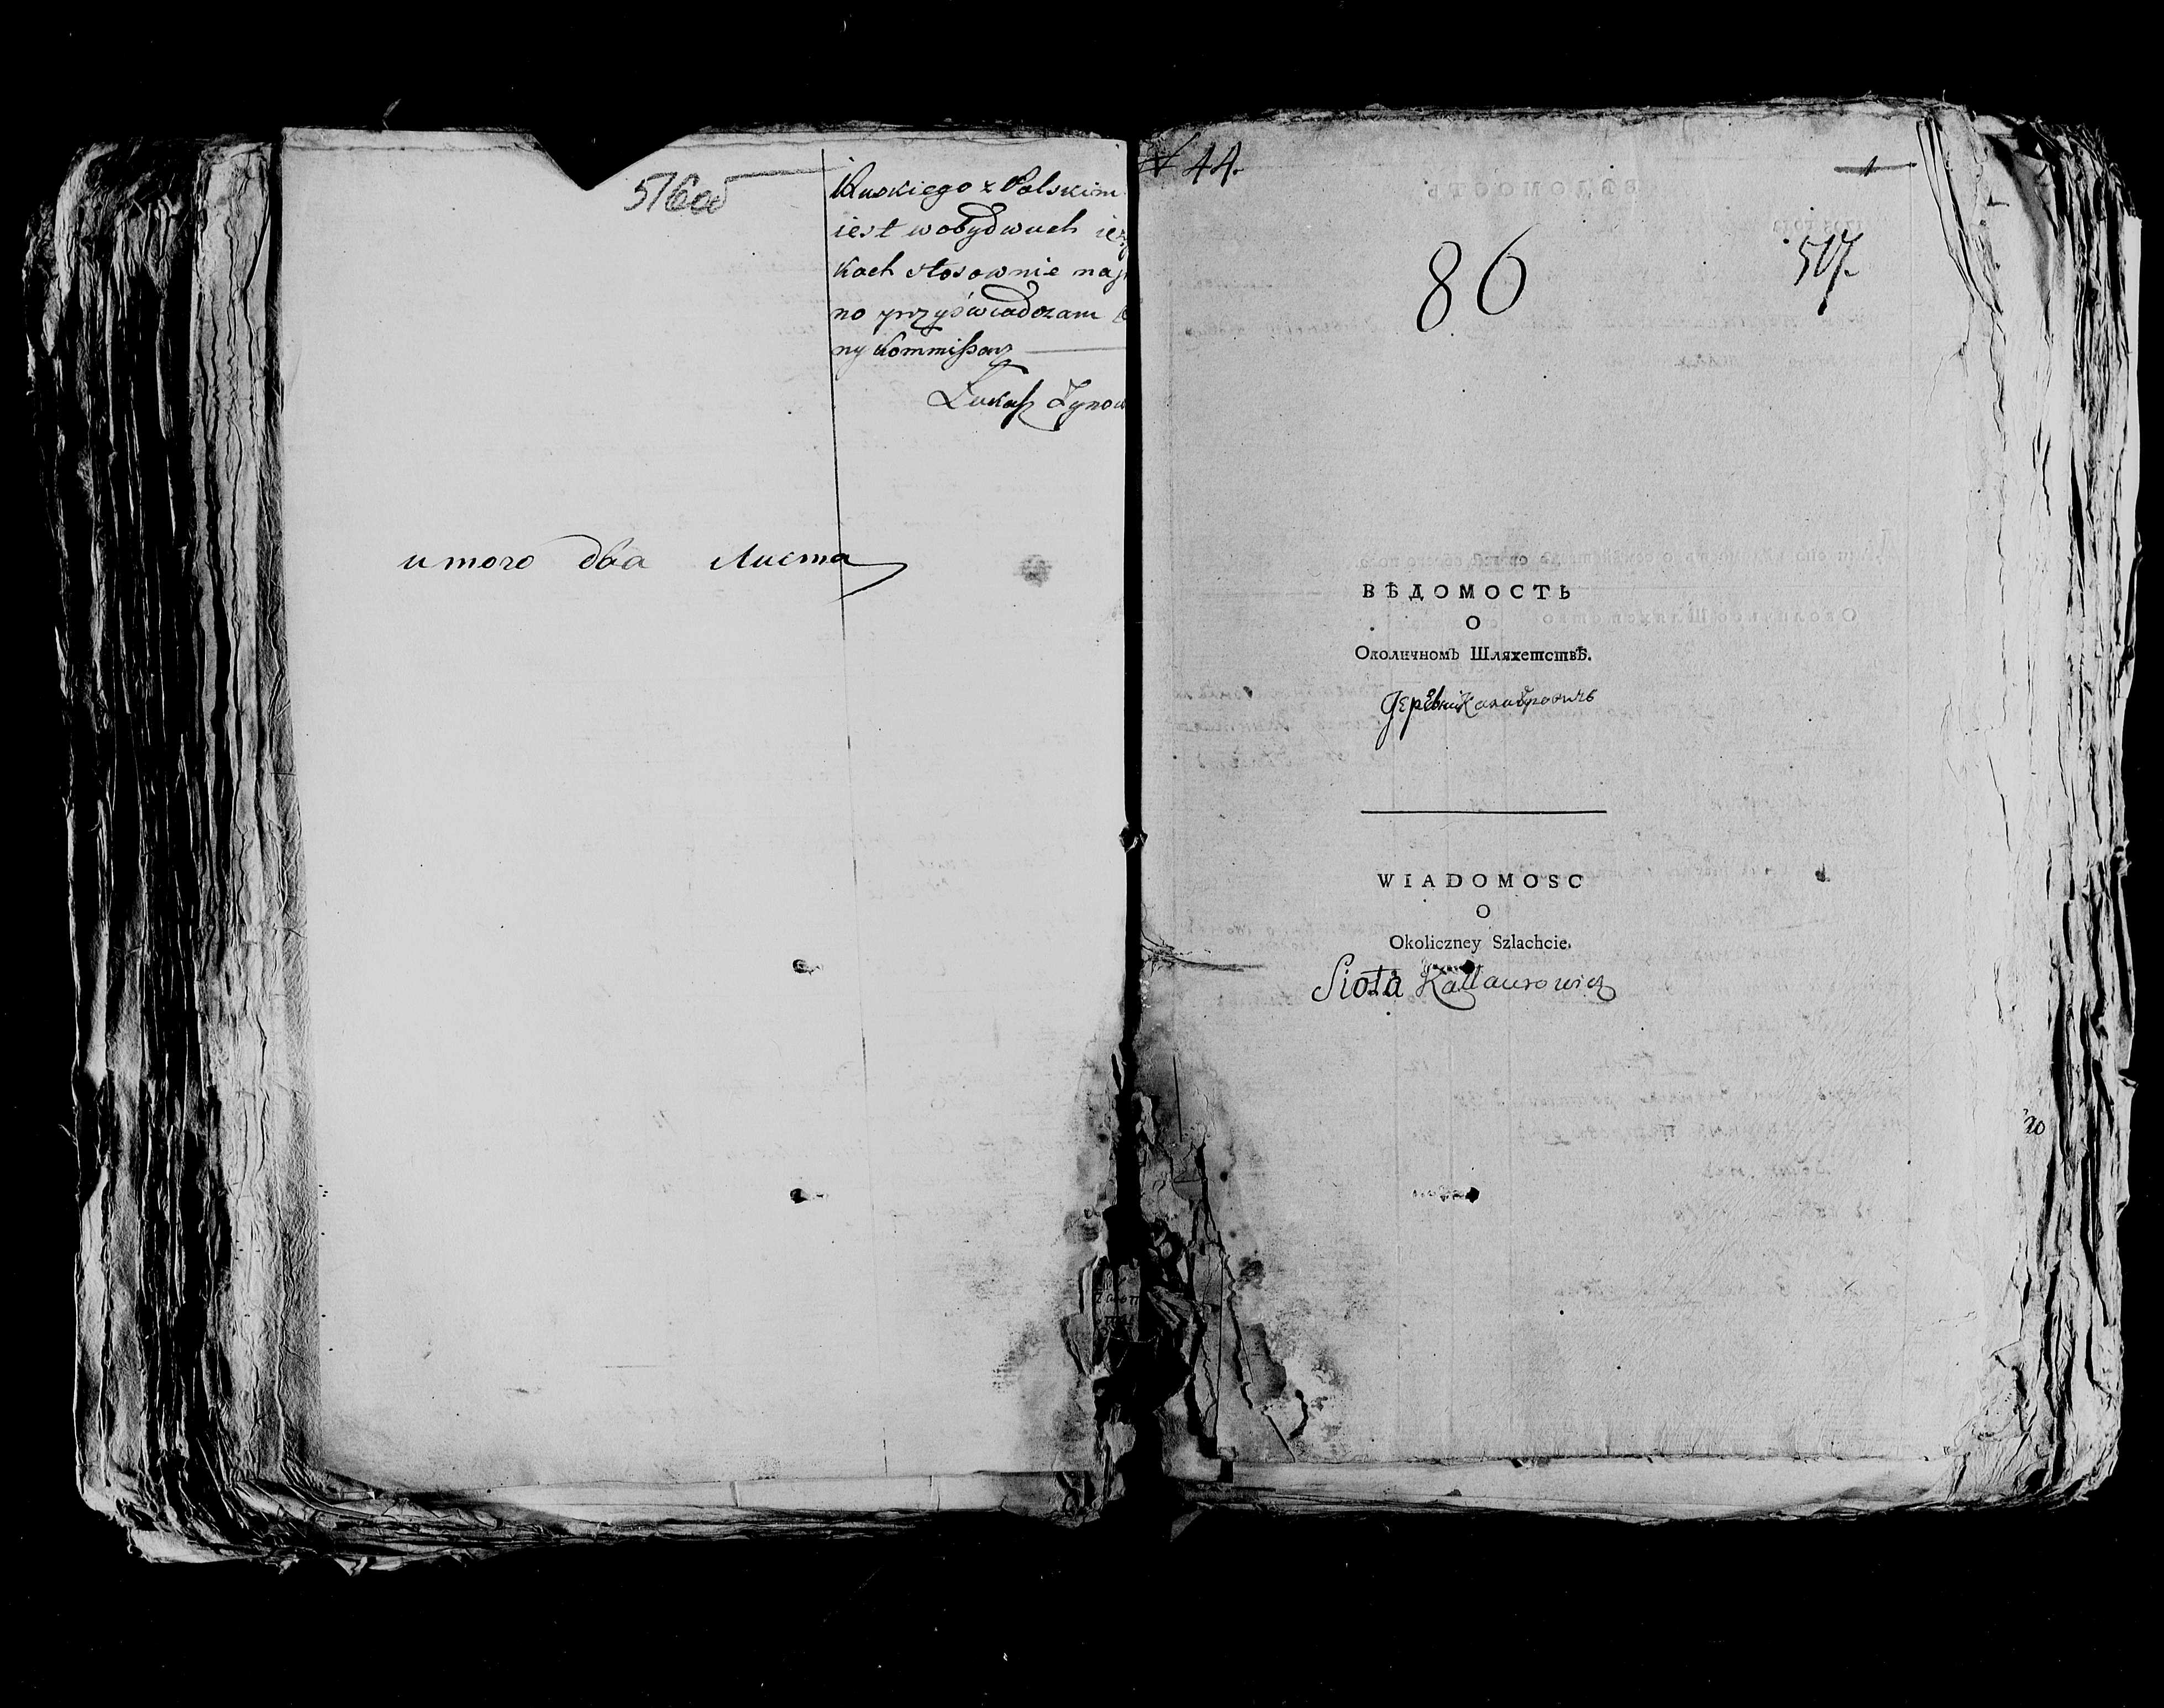 516об
Ruskiego z Polskim
iest w obydwuch ięzy
kach stosownie na
no przyświadczam
ny Kommissarz
Łukasz
итого два листа
№ 44.
1
86
517.
ВѢДОМОСТЬ
О
Околичномъ Шляхетствѣ.
Деревни Калавровичь
WIADOMOSC
O
Okoliczney Szlachcie.
Sioła Kallaurowicz
20